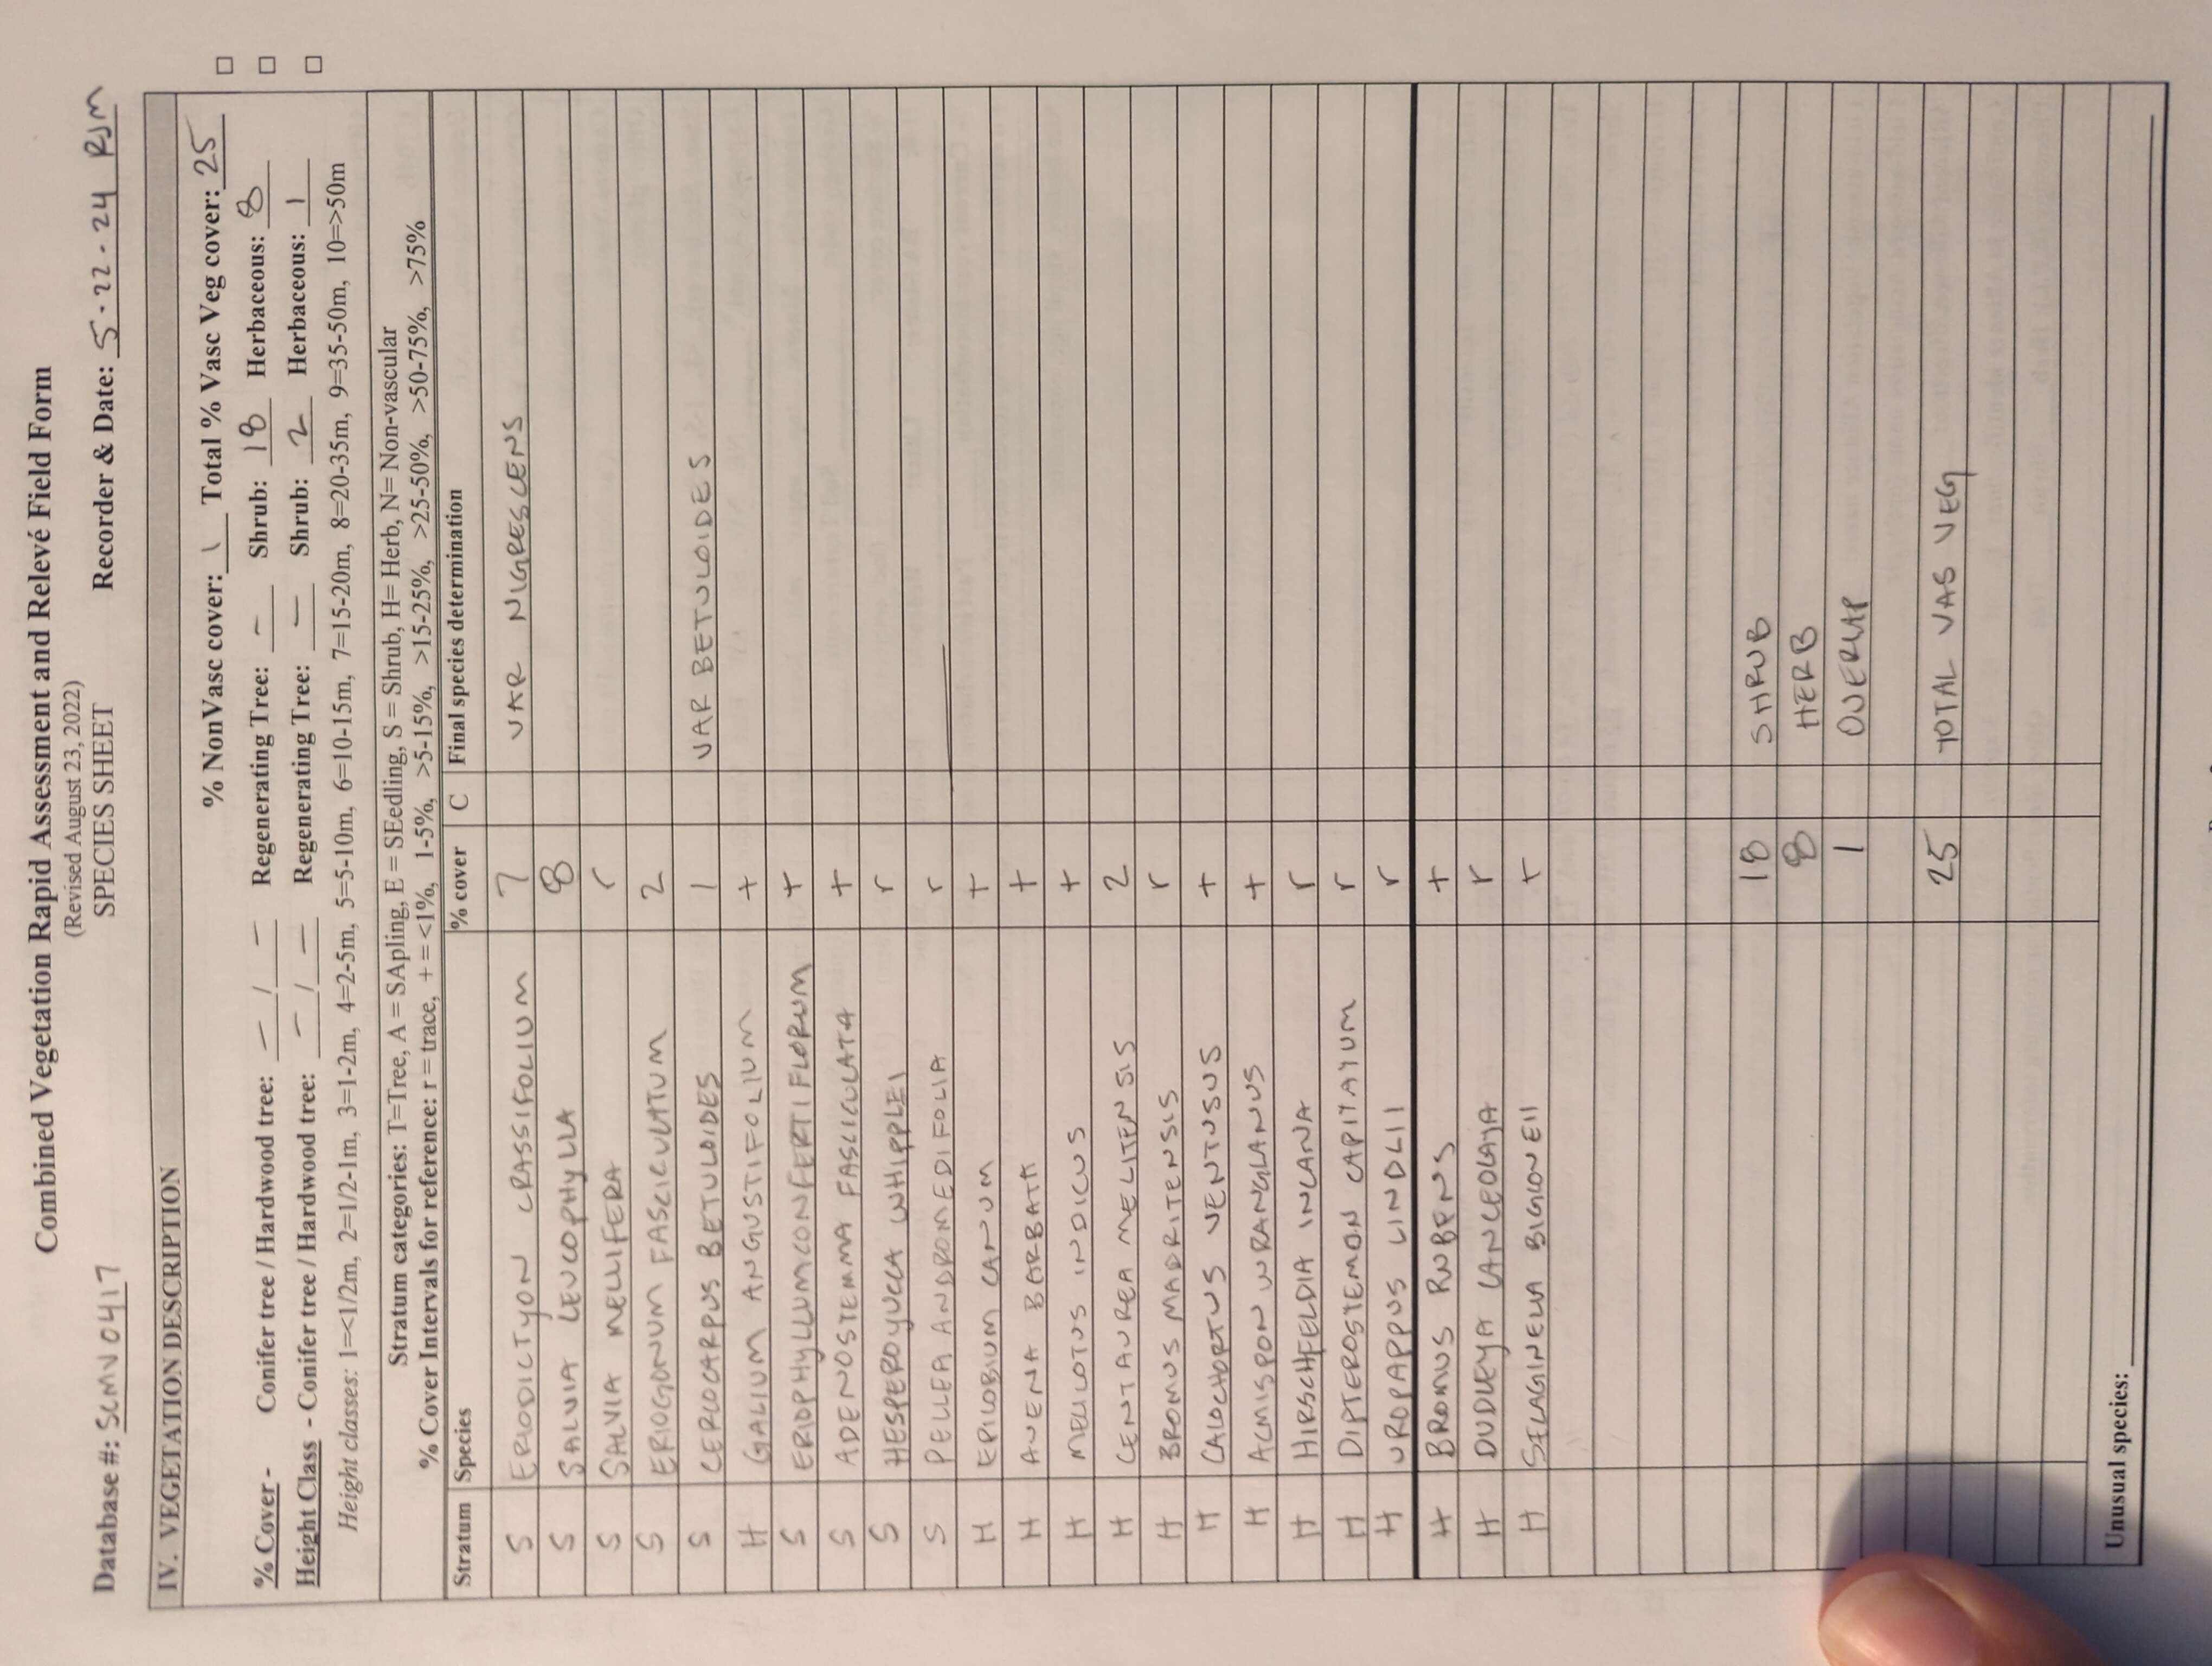 Combined Vegetation Rapid Assessment and Relevé Field Form
(Revised August 23, 2022)
SPECIES SHEET
Database #: SCMN0417 Recorder & Date: 5-22-24 RJM
IV. VEGETATION DESCRIPTION
% NonVasc cover: 1 Total % Vasc Veg cover: 25
% Cover - Conifer tree / Hardwood tree: — / — Regenerating Tree: — Shrub: 18 Herbaceous: 8
Height Class - Conifer tree / Hardwood tree: — / — Regenerating Tree: — Shrub: 2 Herbaceous: 1
Height classes: 1=<1/2m, 2=1/2-1m, 3=1-2m, 4=2-5m, 5=5-10m, 6=10-15m, 7=15-20m, 8=20-35m, 9=35-50m, 10=>50m
Stratum categories: T=Tree, A = SApling, E = SEedling, S = Shrub, H= Herb, N= Non-vascular
% Cover Intervals for reference: r = trace, + = <1%, 1-5%, >5-15%, >15-25%, >25-50%, >50-75%, >75%
Stratum Species % cover C Final species determination
S ERIODICTYON CRASSIFOLIUM 7 VAR NIGRESCENS
S SALVIA LEUCOPHYLLA 8
S SALVIA MELLIFERA r
S ERIOGONUM FASCICULATUM 2
S CERCOCARPUS BETULOIDES 1 VAR BETULOIDES
H GALIUM ANGUSTIFOLIUM +
S ERIOPHYLLUM CONFERTIFLORUM +
S ADENOSTEMMA FASCICULATA +
S HESPEROYUCCA WHIPPLEI r
S PELLEA ANDROMEDIFOLIA r
H EPILOBIUM CANUM +
H AVENA BARBATA +
H MELILOTUS INDICUS +
H CENTAUREA MELITENSIS 2
H BROMUS MADRITENSIS r
H CALOCHORTUS VENTUSUS +
H ACMISPON WRANGLANUS +
H HIRSCHFELDIA INCANA r
H DIPTEROSTEMON CAPITATUM r
H UROPAPPUS LINDLII r
H BROMUS RUBENS +
H DUDLEYA LANCEOLATA r
H SELAGINELLA BIGLOVEII +
18 SHRUB
8 HERB
1 OVERLAP
25 TOTAL VAS VEG
Unusual species: